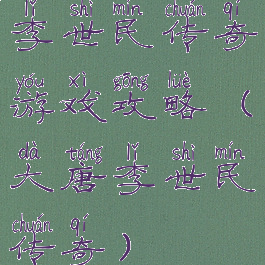 lǐ shì mín chuán qí
李世民传奇
yóu xì gōng lüè
游戏攻略（
dà táng lǐ shì mín
大唐李世民
chuán qí
传奇）